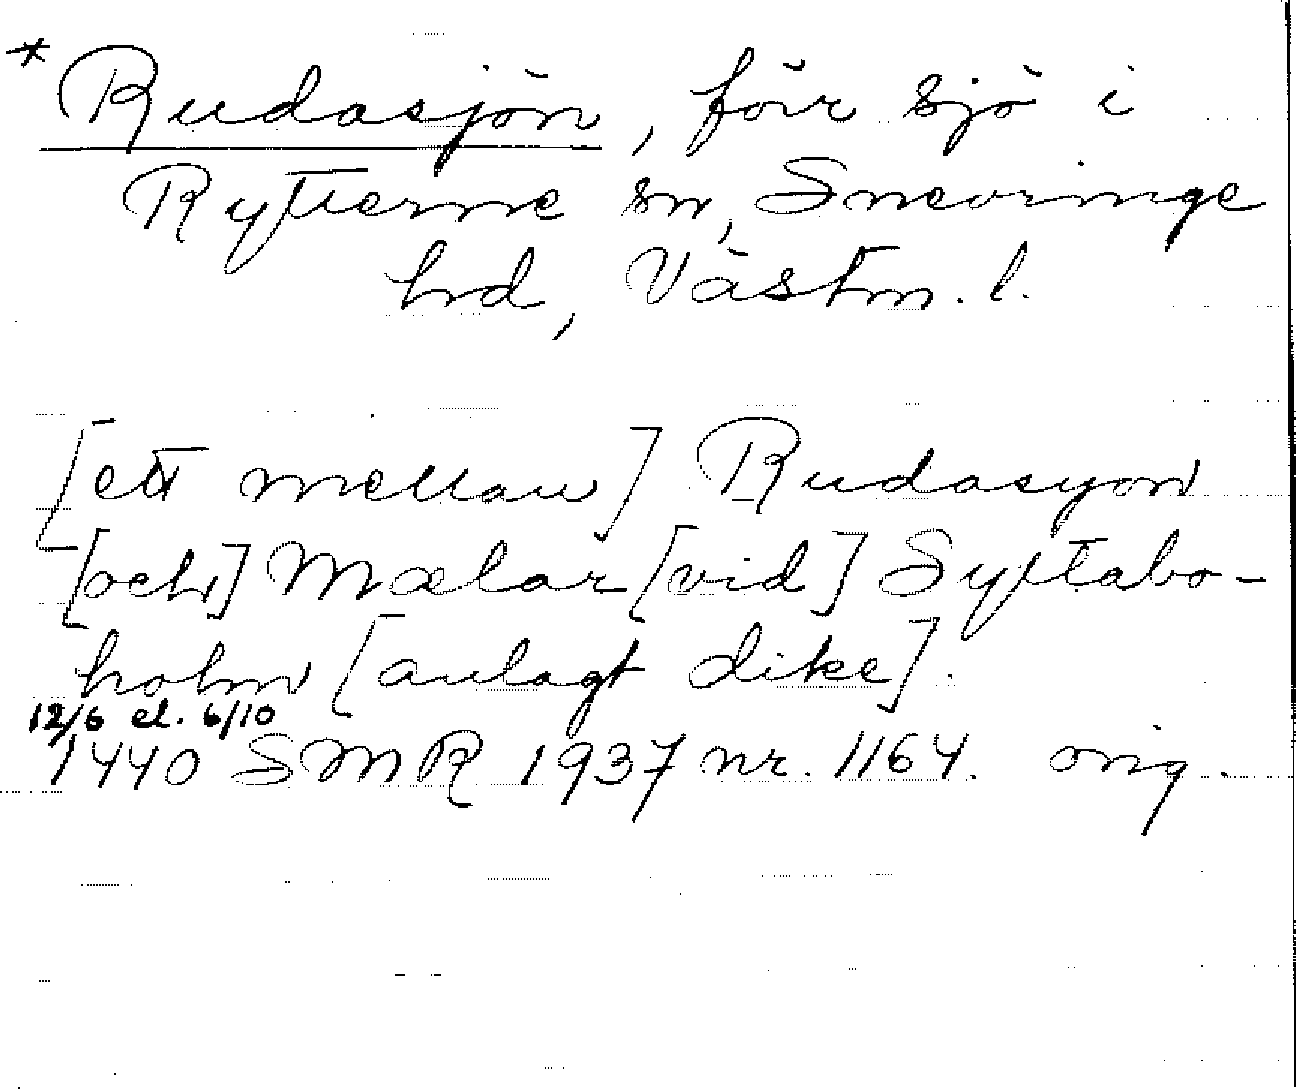 * Rudasjön, förr sjö i
Rytterne sn, Snevringe
hd, Västm. l.
[ett mellan] Rudasyon
[och] Mælar [vid] Syttabo-
holm [anlagt dike].
12/6 el. 6/10
1440 SMR 1937 nr. 1164. orig.